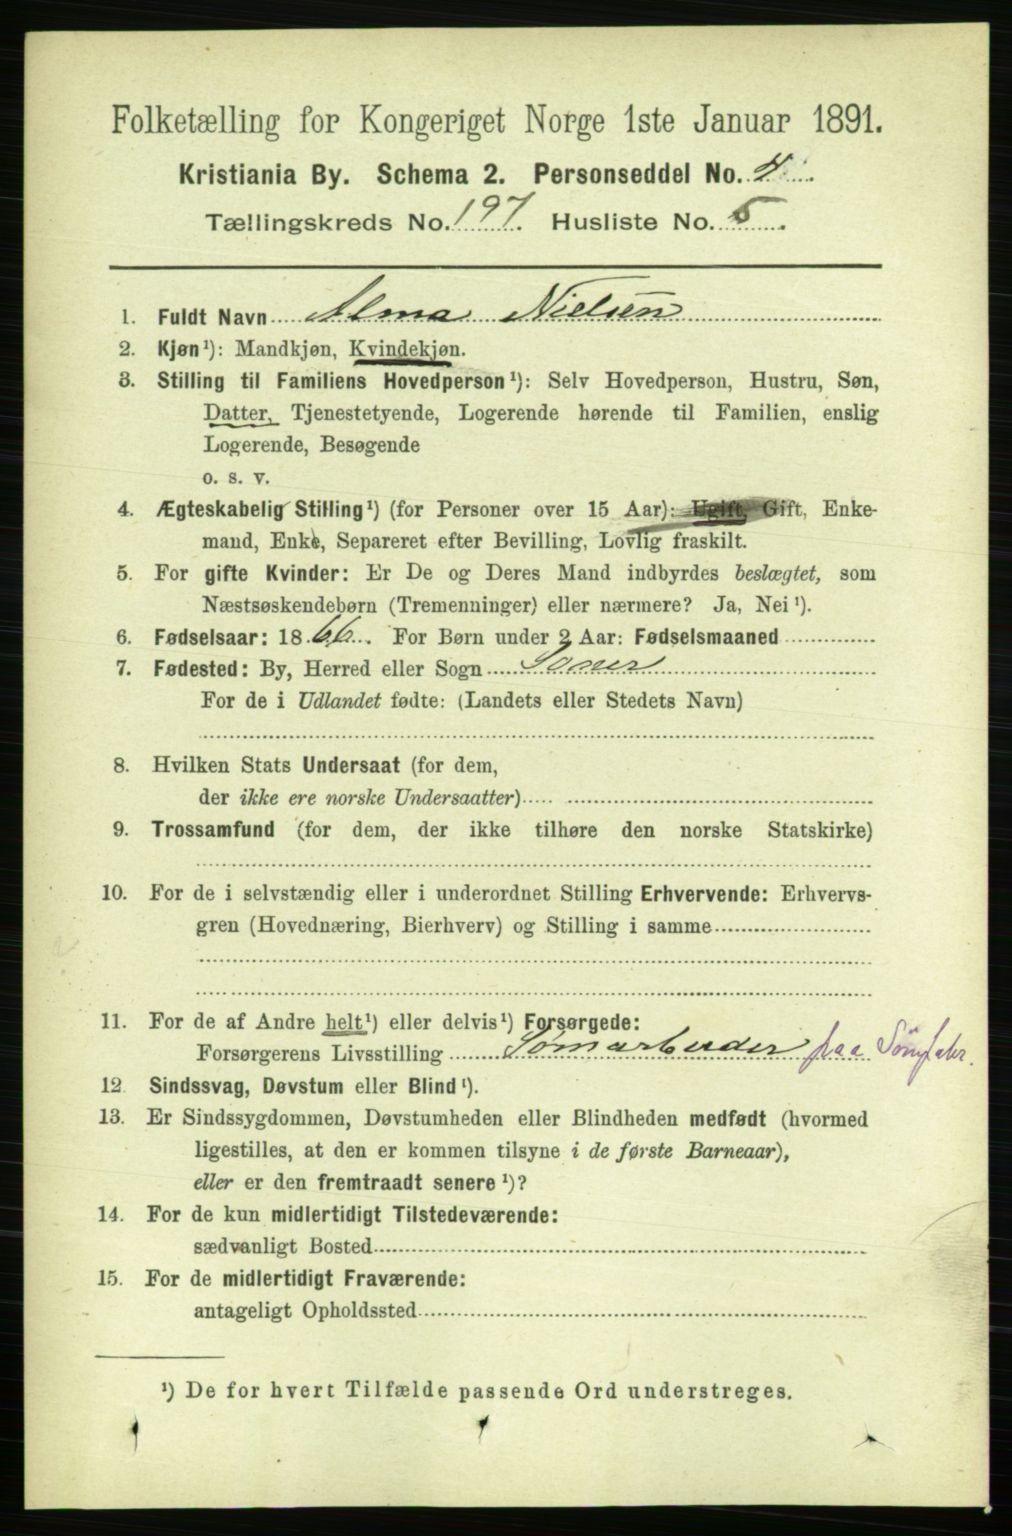 Folketælling for Kongeriget Norge 1ste Januar 1891.
Kristiania By. Schema 2. Personseddel No. 4
Tællingskreds No. 197. Husliste No. 5.
1. Fuldt Navn Alma Nielsen
2. Kjøn¹): Mandkjøn, Kvindekjøn.
3. Stilling til Familiens Hovedperson¹): Selv Hovedperson, Hustru, Søn,
Datter, Tjenestetyende, Logerende hørende til Familien, enslig
Logerende, Besøgende
o. s. v.
4. Ægteskabelig Stilling¹) (for Personer over 15 Aar): Ugift, Gift, Enke-
mand, Enke, Separeret efter Bevilling, Lovlig fraskilt.
5. For gifte Kvinder: Er De og Deres Mand indbyrdes beslægtet, som
Næstsøskendebørn (Tremenninger) eller nærmere? Ja, Nei¹).
6. Fødselsaar: 1866. For Børn under 2 Aar: Fødselsmaaned
7. Fødested: By, Herred eller Sogn Soner
For de i Udlandet fødte: (Landets eller Stedets Navn)
8. Hvilken Stats Undersaat (for dem,
der ikke ere norske Undersaatter)
9. Trossamfund (for dem, der ikke tilhøre den norske Statskirke)
10. For de i selvstændig eller i underordnet Stilling Erhvervende: Erhvervs-
gren (Hovednæring, Bierhverv) og Stilling i samme
11. For de af Andre helt¹) eller delvis¹) Forsørgede:
Forsørgerens Livsstilling Sømarbeider paa Sömfabr.
12 Sindssvag, Døvstum eller Blind¹).
13. Er Sindssygdommen, Døvstumheden eller Blindheden medfødt (hvormed
ligestilles, at den er kommen tilsyne i de første Barneaar),
eller er den fremtraadt senere¹)?
14. For de kun midlertidigt Tilstedeværende:
sædvanligt Bosted
15. For de midlertidigt Fraværende:
antageligt Opholdssted
¹) De for hvert Tilfælde passende Ord understreges.